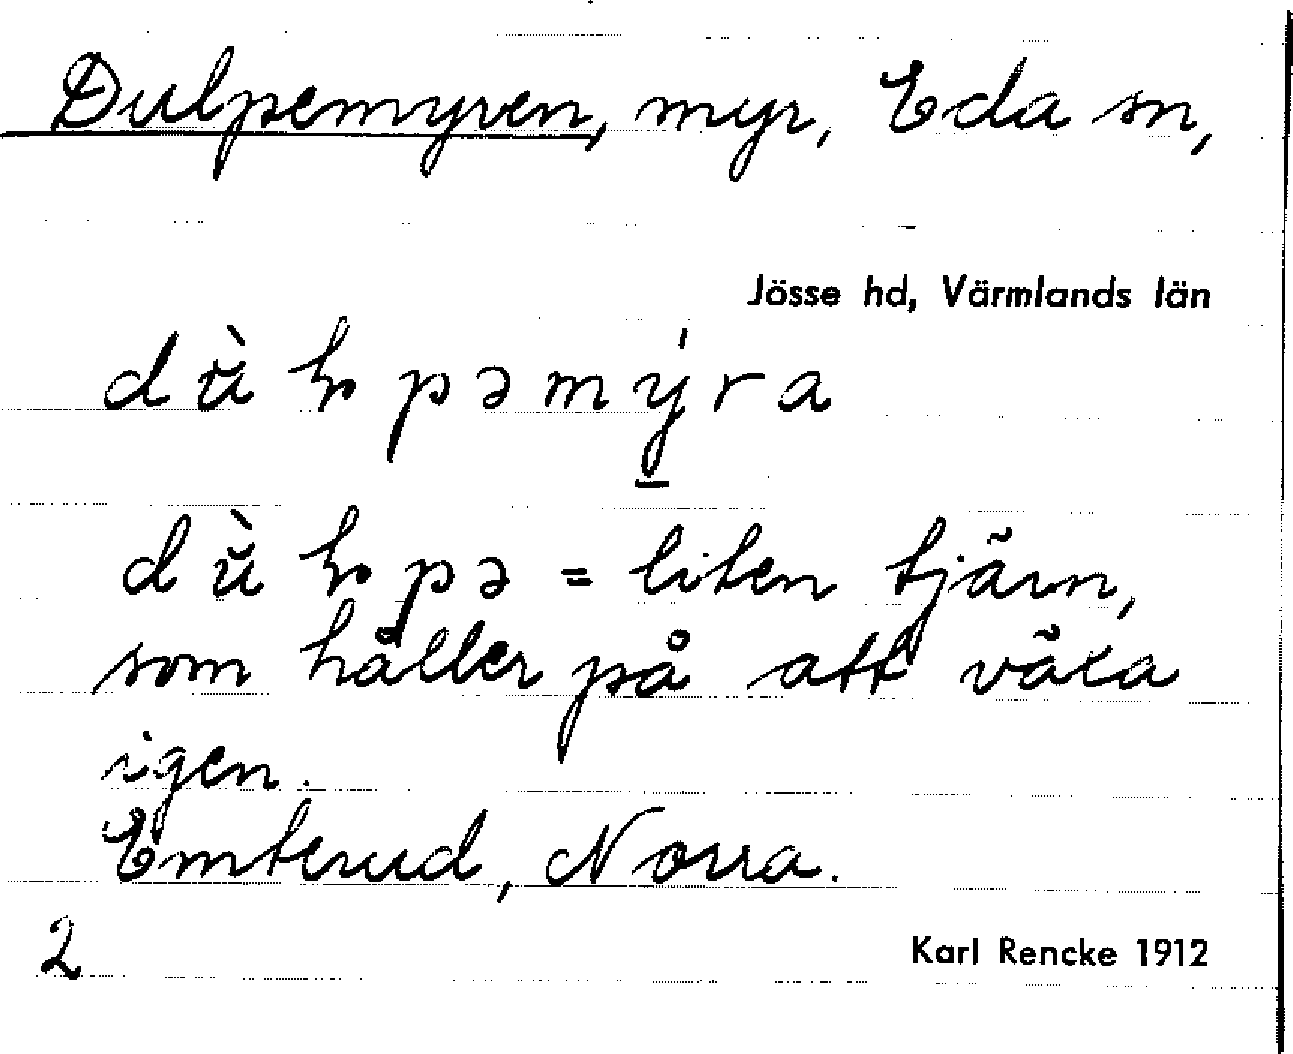 Dulpemyren, myr, Eda sn,
Jösse hd, Värmlands län
dù ɫ pəmýra
dù ɫ pə = liten tjärn,
som håller på att växa
igen.
Emterud, Norra.
2
Karl Rencke 1912